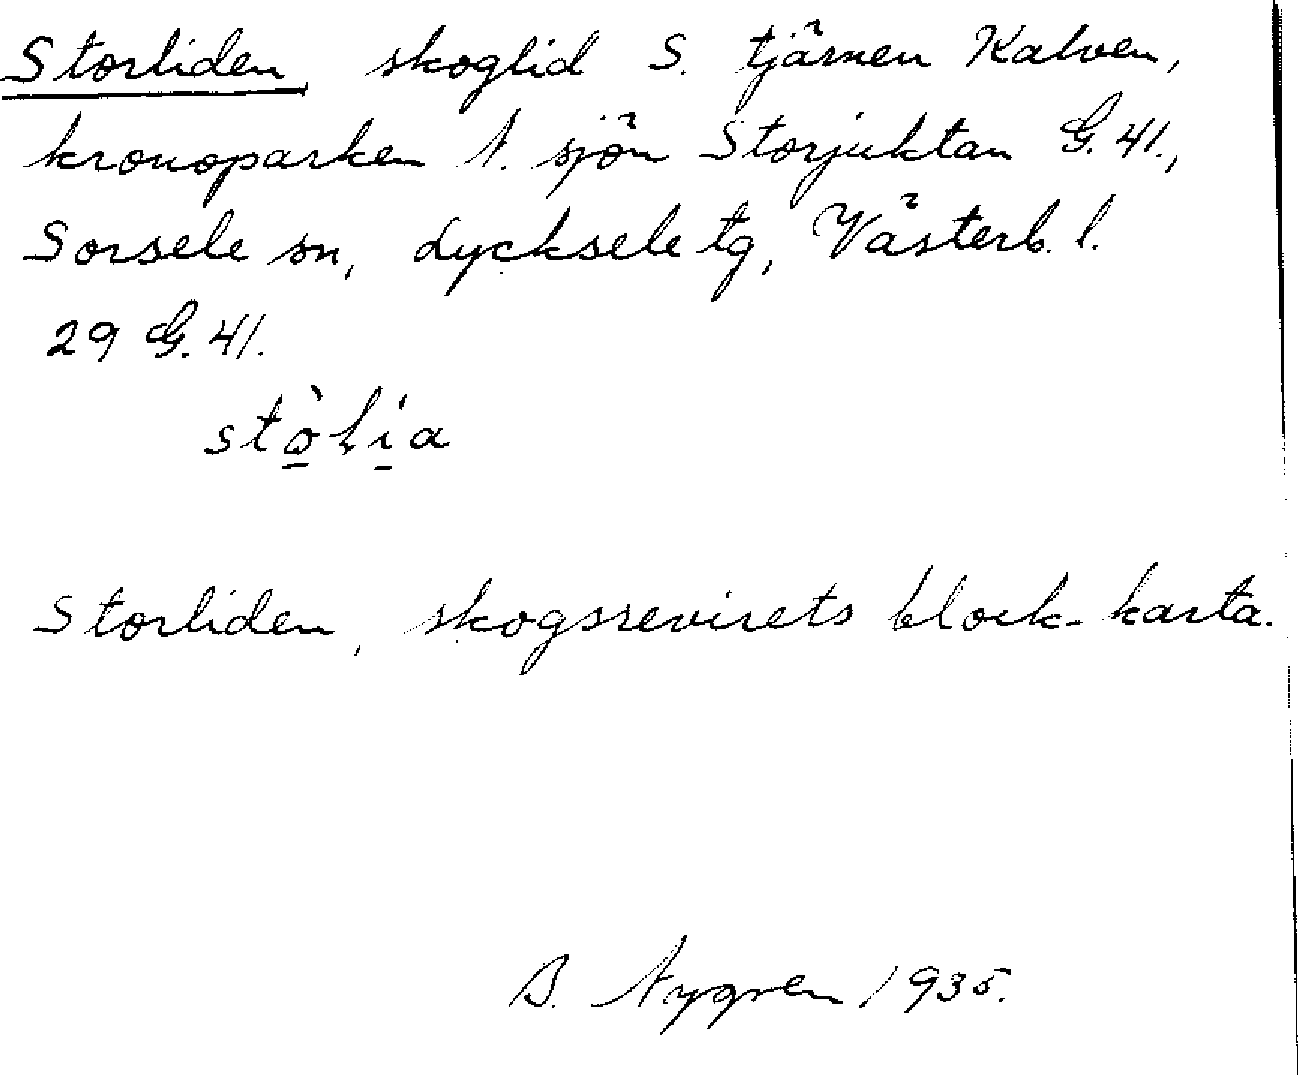 Storliden, skoglid S. tjärnen Kalven,
kronoparken N. sjön Storjuktan G. 41.,
Sorsele sn, Lycksele tg, Västerb. l.
29 G. 41.
stò̱lí̱a
Storliden, skogsrevirets block-karta.
B. Nygren 1935.